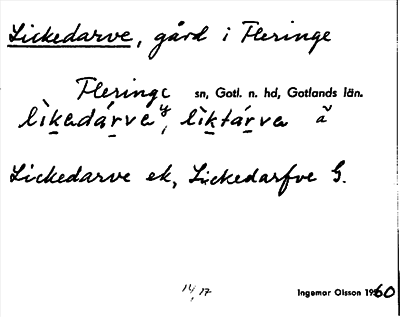 Lickedarve, gård i Fleringe
Fleringe sn, Gotl. n. hd, Gotlands län.
lìkadárve, lìktárva
Lickedarve ek, Lickedarfve G.
14, 17
Ingemar Olsson 1960